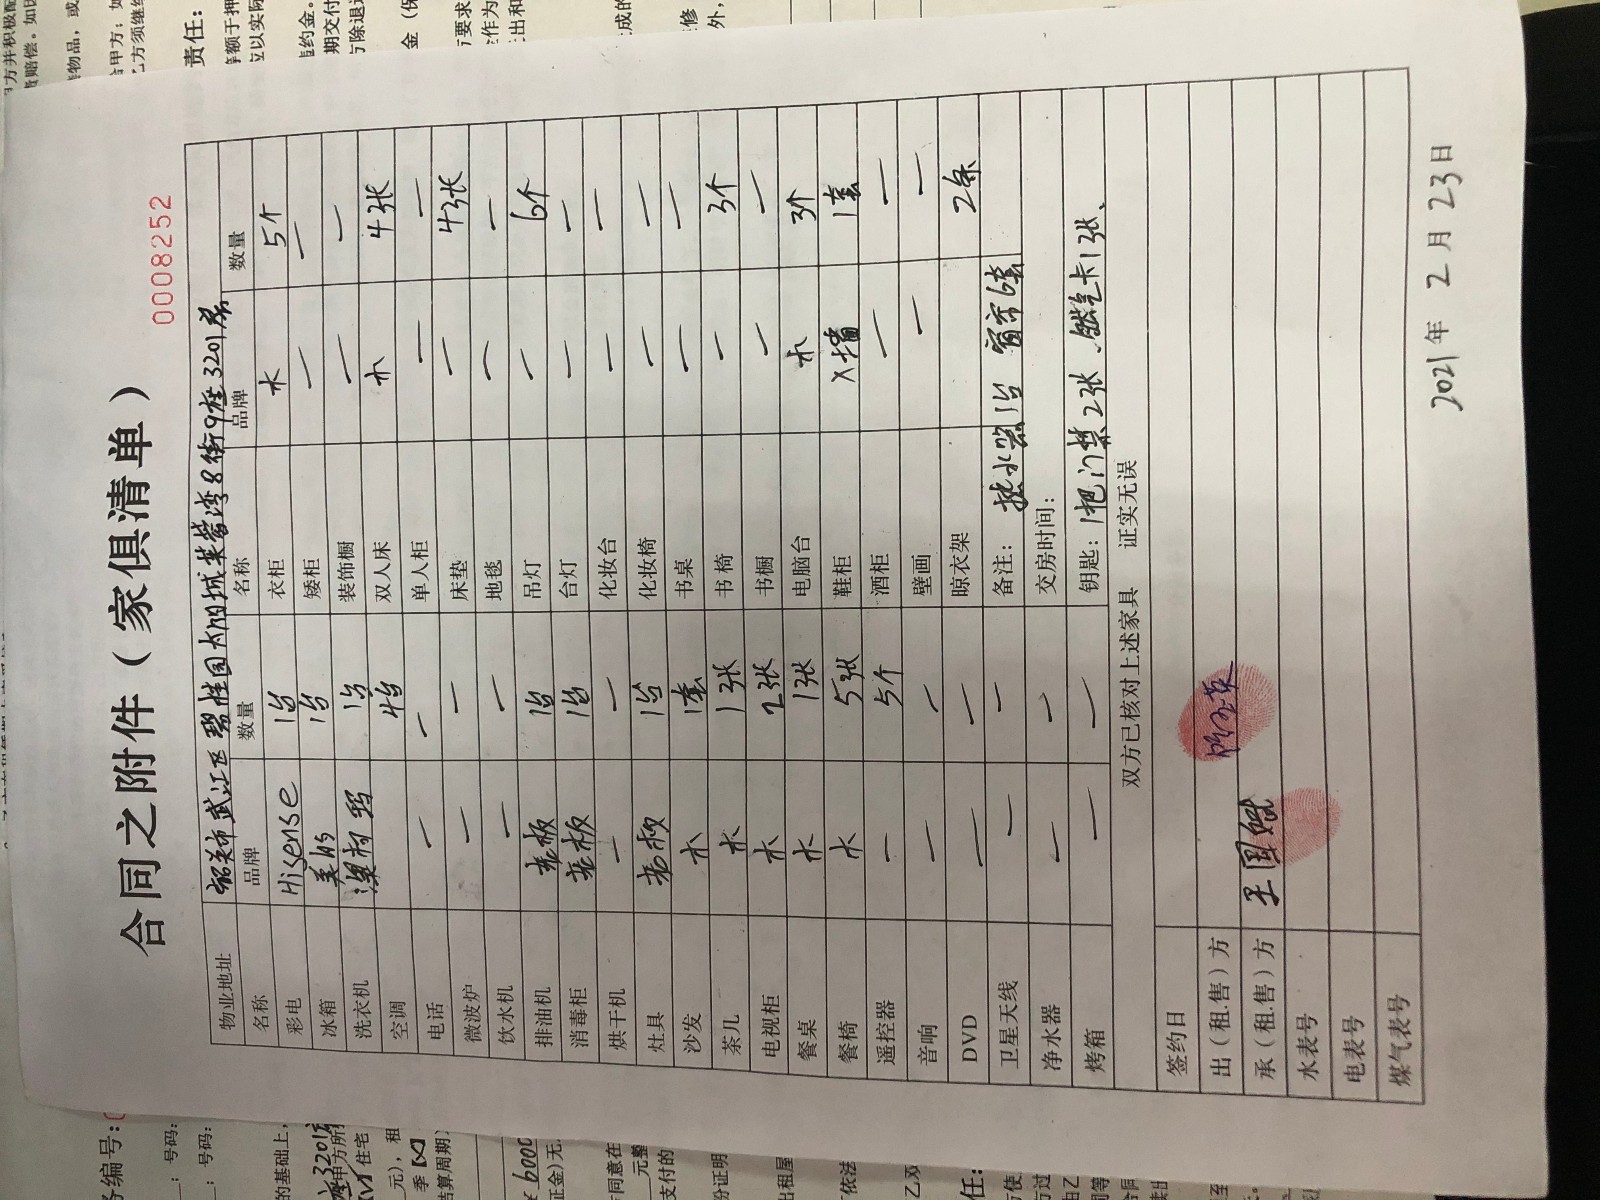 合同之附件（家俱清单）
0008252
物业地址 韶关市武江区碧桂园太阳城芙蓉湾8街9座3201房
名称 品牌 数量 名称 品牌 数量
彩电 Hisense 1台 衣柜 木 5个
冰箱 美的 1台 矮柜 — —
洗衣机 澳柯玛 1台 装饰橱 — —
空调 4台 双人床 木 4张
电话 — — 单人柜 — —
微波炉 — — 床垫 — 4张
饮水机 — — 地毯 — —
排油机 老板 1台 吊灯 — 6个
消毒柜 老板 1台 台灯 — —
烘干机 — — 化妆台 — —
灶具 老板 1台 化妆椅 — —
沙发 木 1套 书桌 — —
茶几 木 1张 书椅 — 3个
电视柜 木 2张 书橱 — —
餐桌 木 1张 电脑台 木 3个
餐椅 木 5张 鞋柜 入墙 1套
遥控器 — 5个 酒柜 — —
音响 — — 壁画 — —
DVD — — 晾衣架 2条
卫星天线 — — 备注： 热水器1台 窗帘6套
净水器 — — 交房时间：
烤箱 — — 钥匙：1把 门禁2张、燃气卡1张、
双方已核对上述家具 证实无误
签约日
出（租.售）方
承（租.售）方 王国
水表号
电表号
煤气表号
2021年 2月 23日